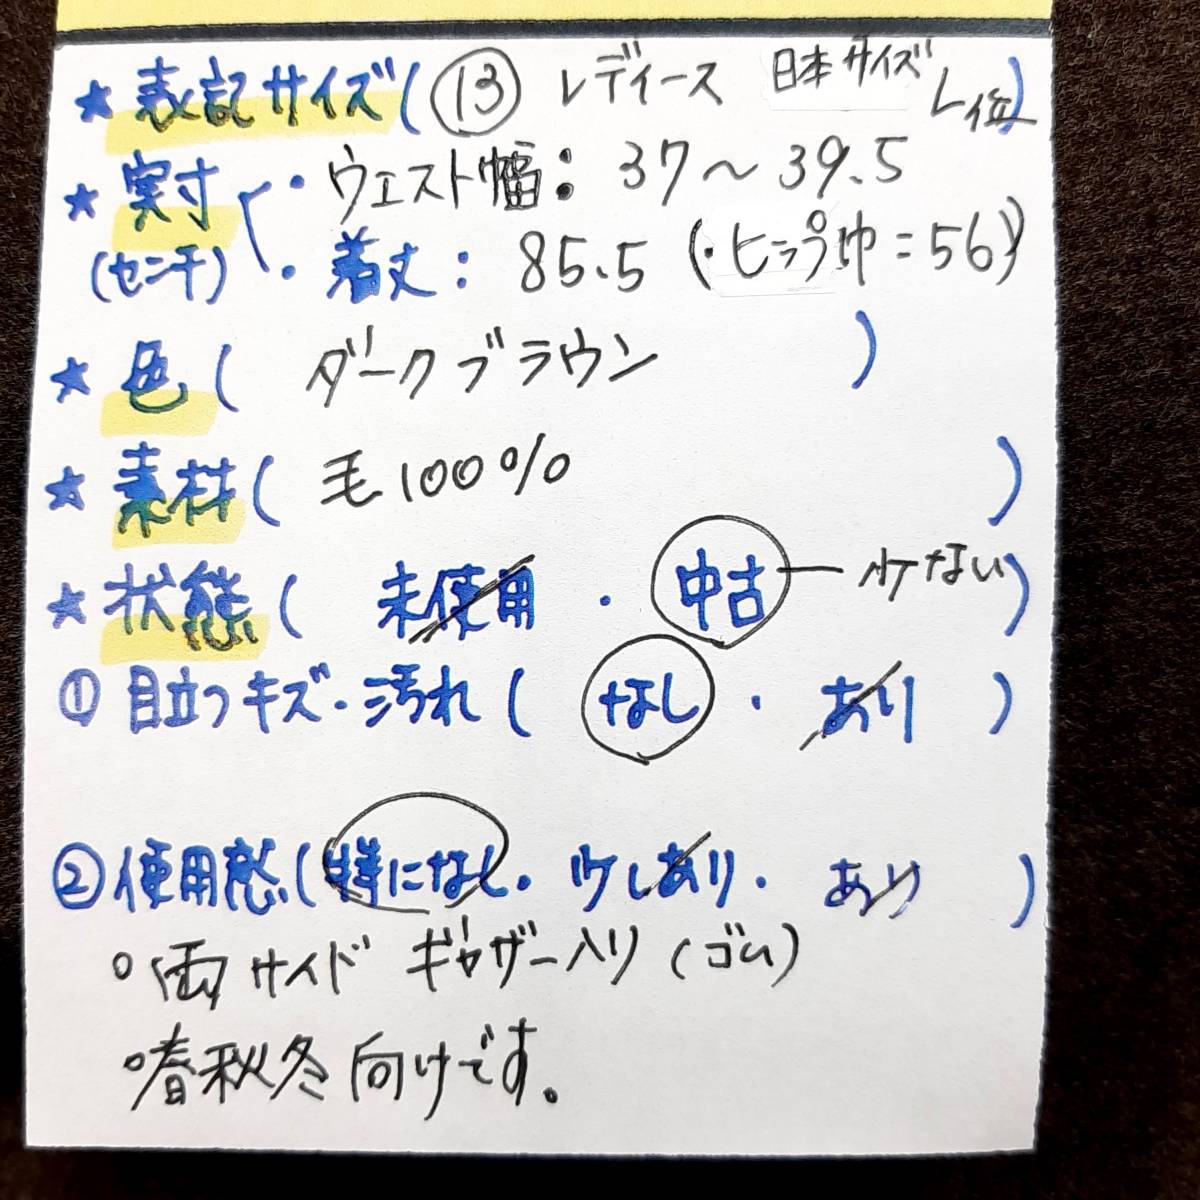 ★表記サイズ(⑬ レディース 日本サイズL位)
★実寸(・ウェスト幅：37〜39.5
(センチ) ・着丈：85.5 (・ヒップ巾=56)
★色( ダークブラウン )
★素材( 毛100% )
★状態( 未使用 ・ 中古 ー 少ない)
①目立つキズ・汚れ( なし ・ あり )
②使用感(特になし・少しあり・ あり )
○両サイド ギャザー入り(ゴム)
○春秋冬向けです。